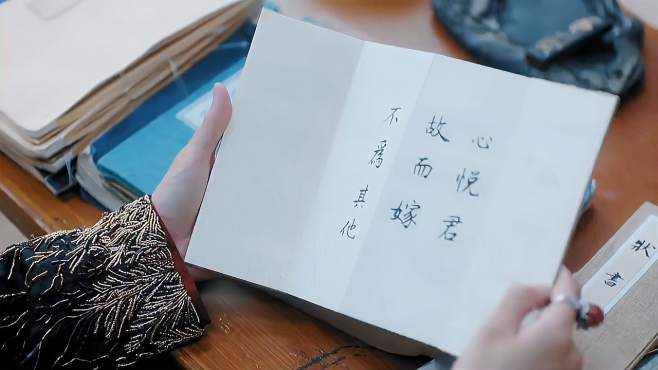 心悦君
故而嫁
不爲其他
狀書